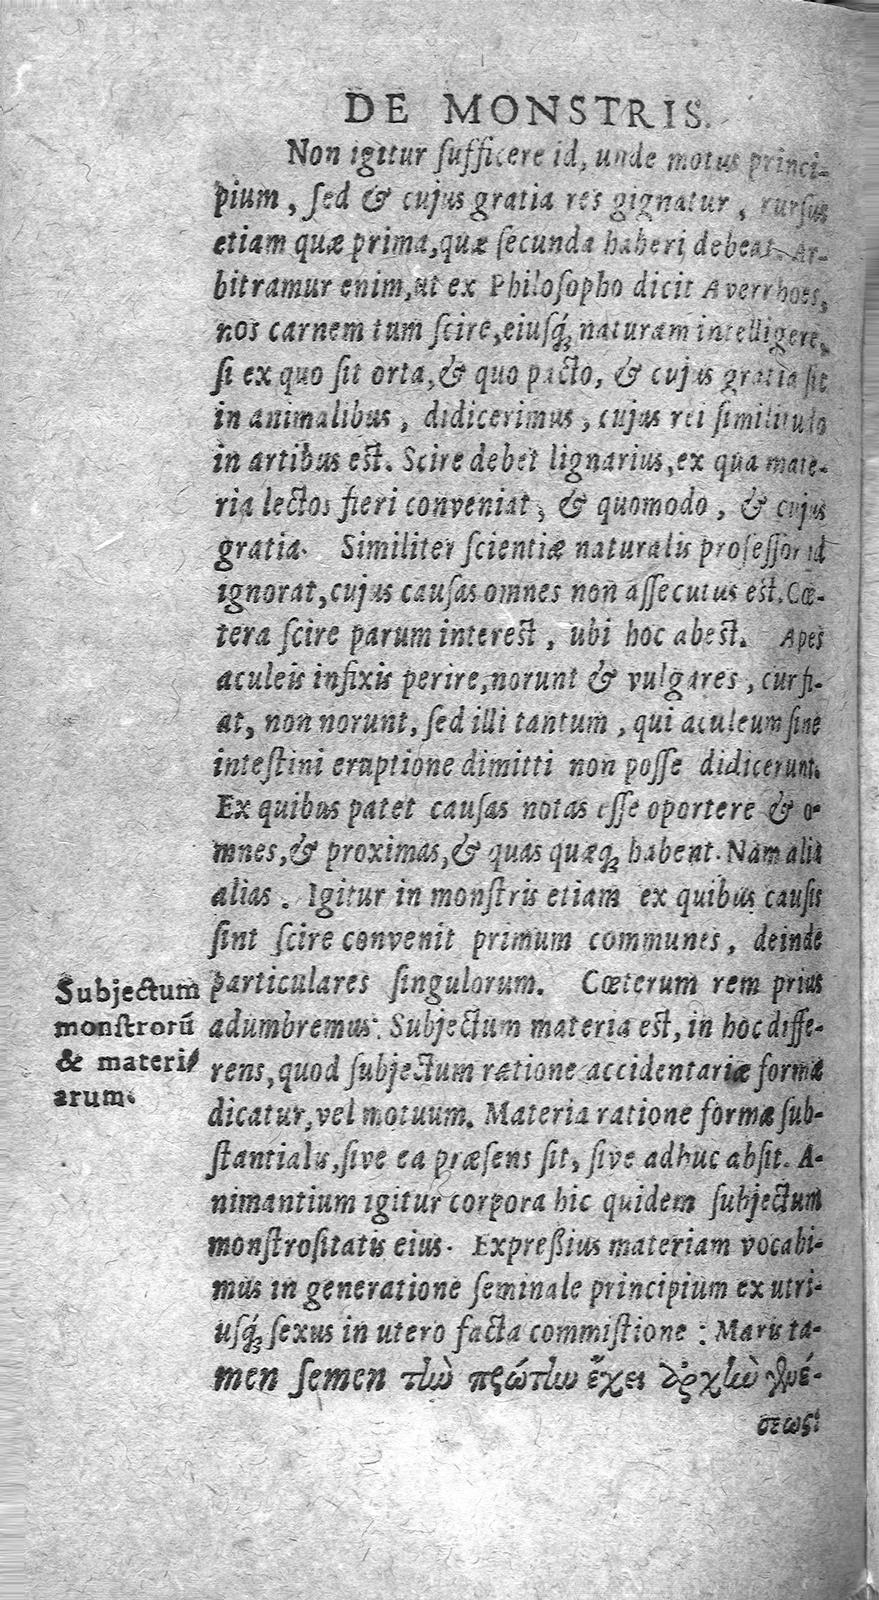 DE MONSTRIS.
Non igitur ſufficere id, unde motus princi-
pium, ſed & cujus gratia res gignatur, rurſus
etiam quæ prima, quæ ſecunda haberi debeat. Ar-
bitramur enim, ut ex Philoſopho dicit Averrhoes,
nos carnem tum ſcire, eiuſq́; naturam intelligere,
ſi ex quo ſit orta, & quo pacto, & cujus gratia ſit
in animalibus, didicerimus, cujus rei ſimilitudo
in artibus eſt. Scire debet lignarius, ex qua mate-
ria lectos fieri conveniat, & quomodo, & cujus
gratia. Similiter ſcientiæ naturalis profeſſor id
ignorat, cujus cauſas omnes non aſſecutus eſt. Cœ-
tera ſcire parum intereſt, ubi hoc abeſt. Apes
aculeis infixis perire, norunt & vulgares, cur fi-
at, non norunt, ſed illi tantum, qui aculeum ſine
inteſtini eruptione dimitti non poſſe didicerunt.
Ex quibus patet cauſas notas eſſe oportere & o-
mnes, & proximas, & quas quæq; habent. Nam alia
alias. Igitur in monſtris etiam ex quibus cauſis
ſint ſcire convenit primum communes, deinde
particulares ſingulorum. Cœterum rem prius
adumbremus. Subjectum materia eſt, in hoc diffe-
rens, quod ſubjectum ratione accidentariæ formæ
dicatur, vel motuum. Materia ratione formæ ſub-
ſtantialis, ſive ea præſens ſit, ſive adhuc abſit. A-
nimantium igitur corpora hic quidem ſubjectum
monſtroſitatis eius. Expreßius materiam vocabi-
mus in generatione ſeminale principium ex utri-
uſq́; ſexus in utero facta commiſtione: Maris ta-
men ſemen τὴν πρώτην ἔχει ἀρχὴν γενέ-
σεως:
Subjectum
monſtrorũ
& materi
arum.